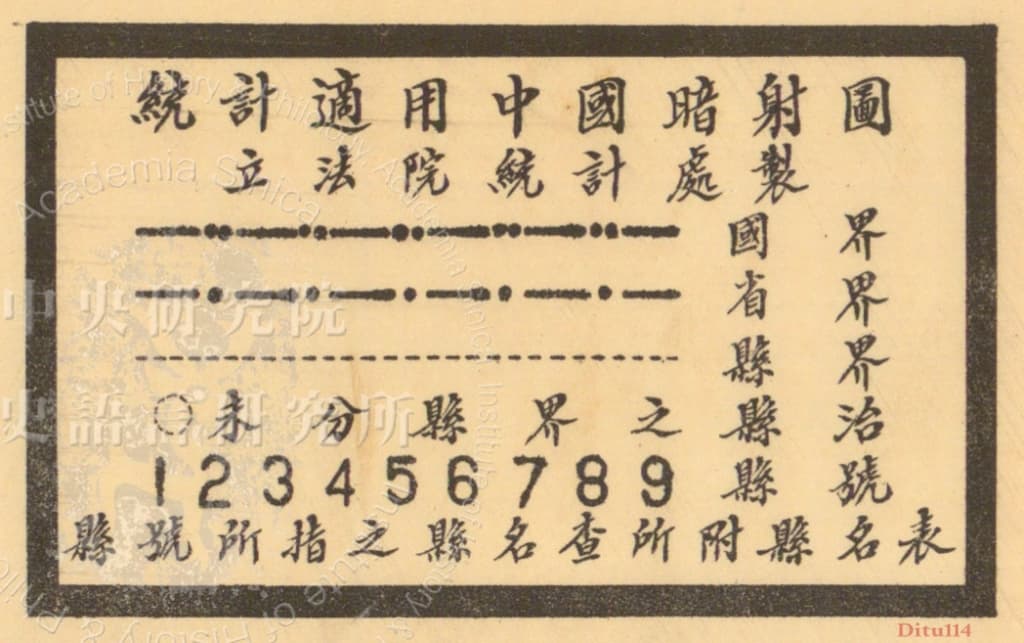 統計適用中國暗射圖
立法院統計處製
國界
省界
縣界
未分縣界之縣治
1 2 3 4 5 6 7 8 9 縣號
縣號所指之縣名查所附縣名表
中央研究院
史語言研究所
Institute of History & Philology, Academia Sinica
Ditu114